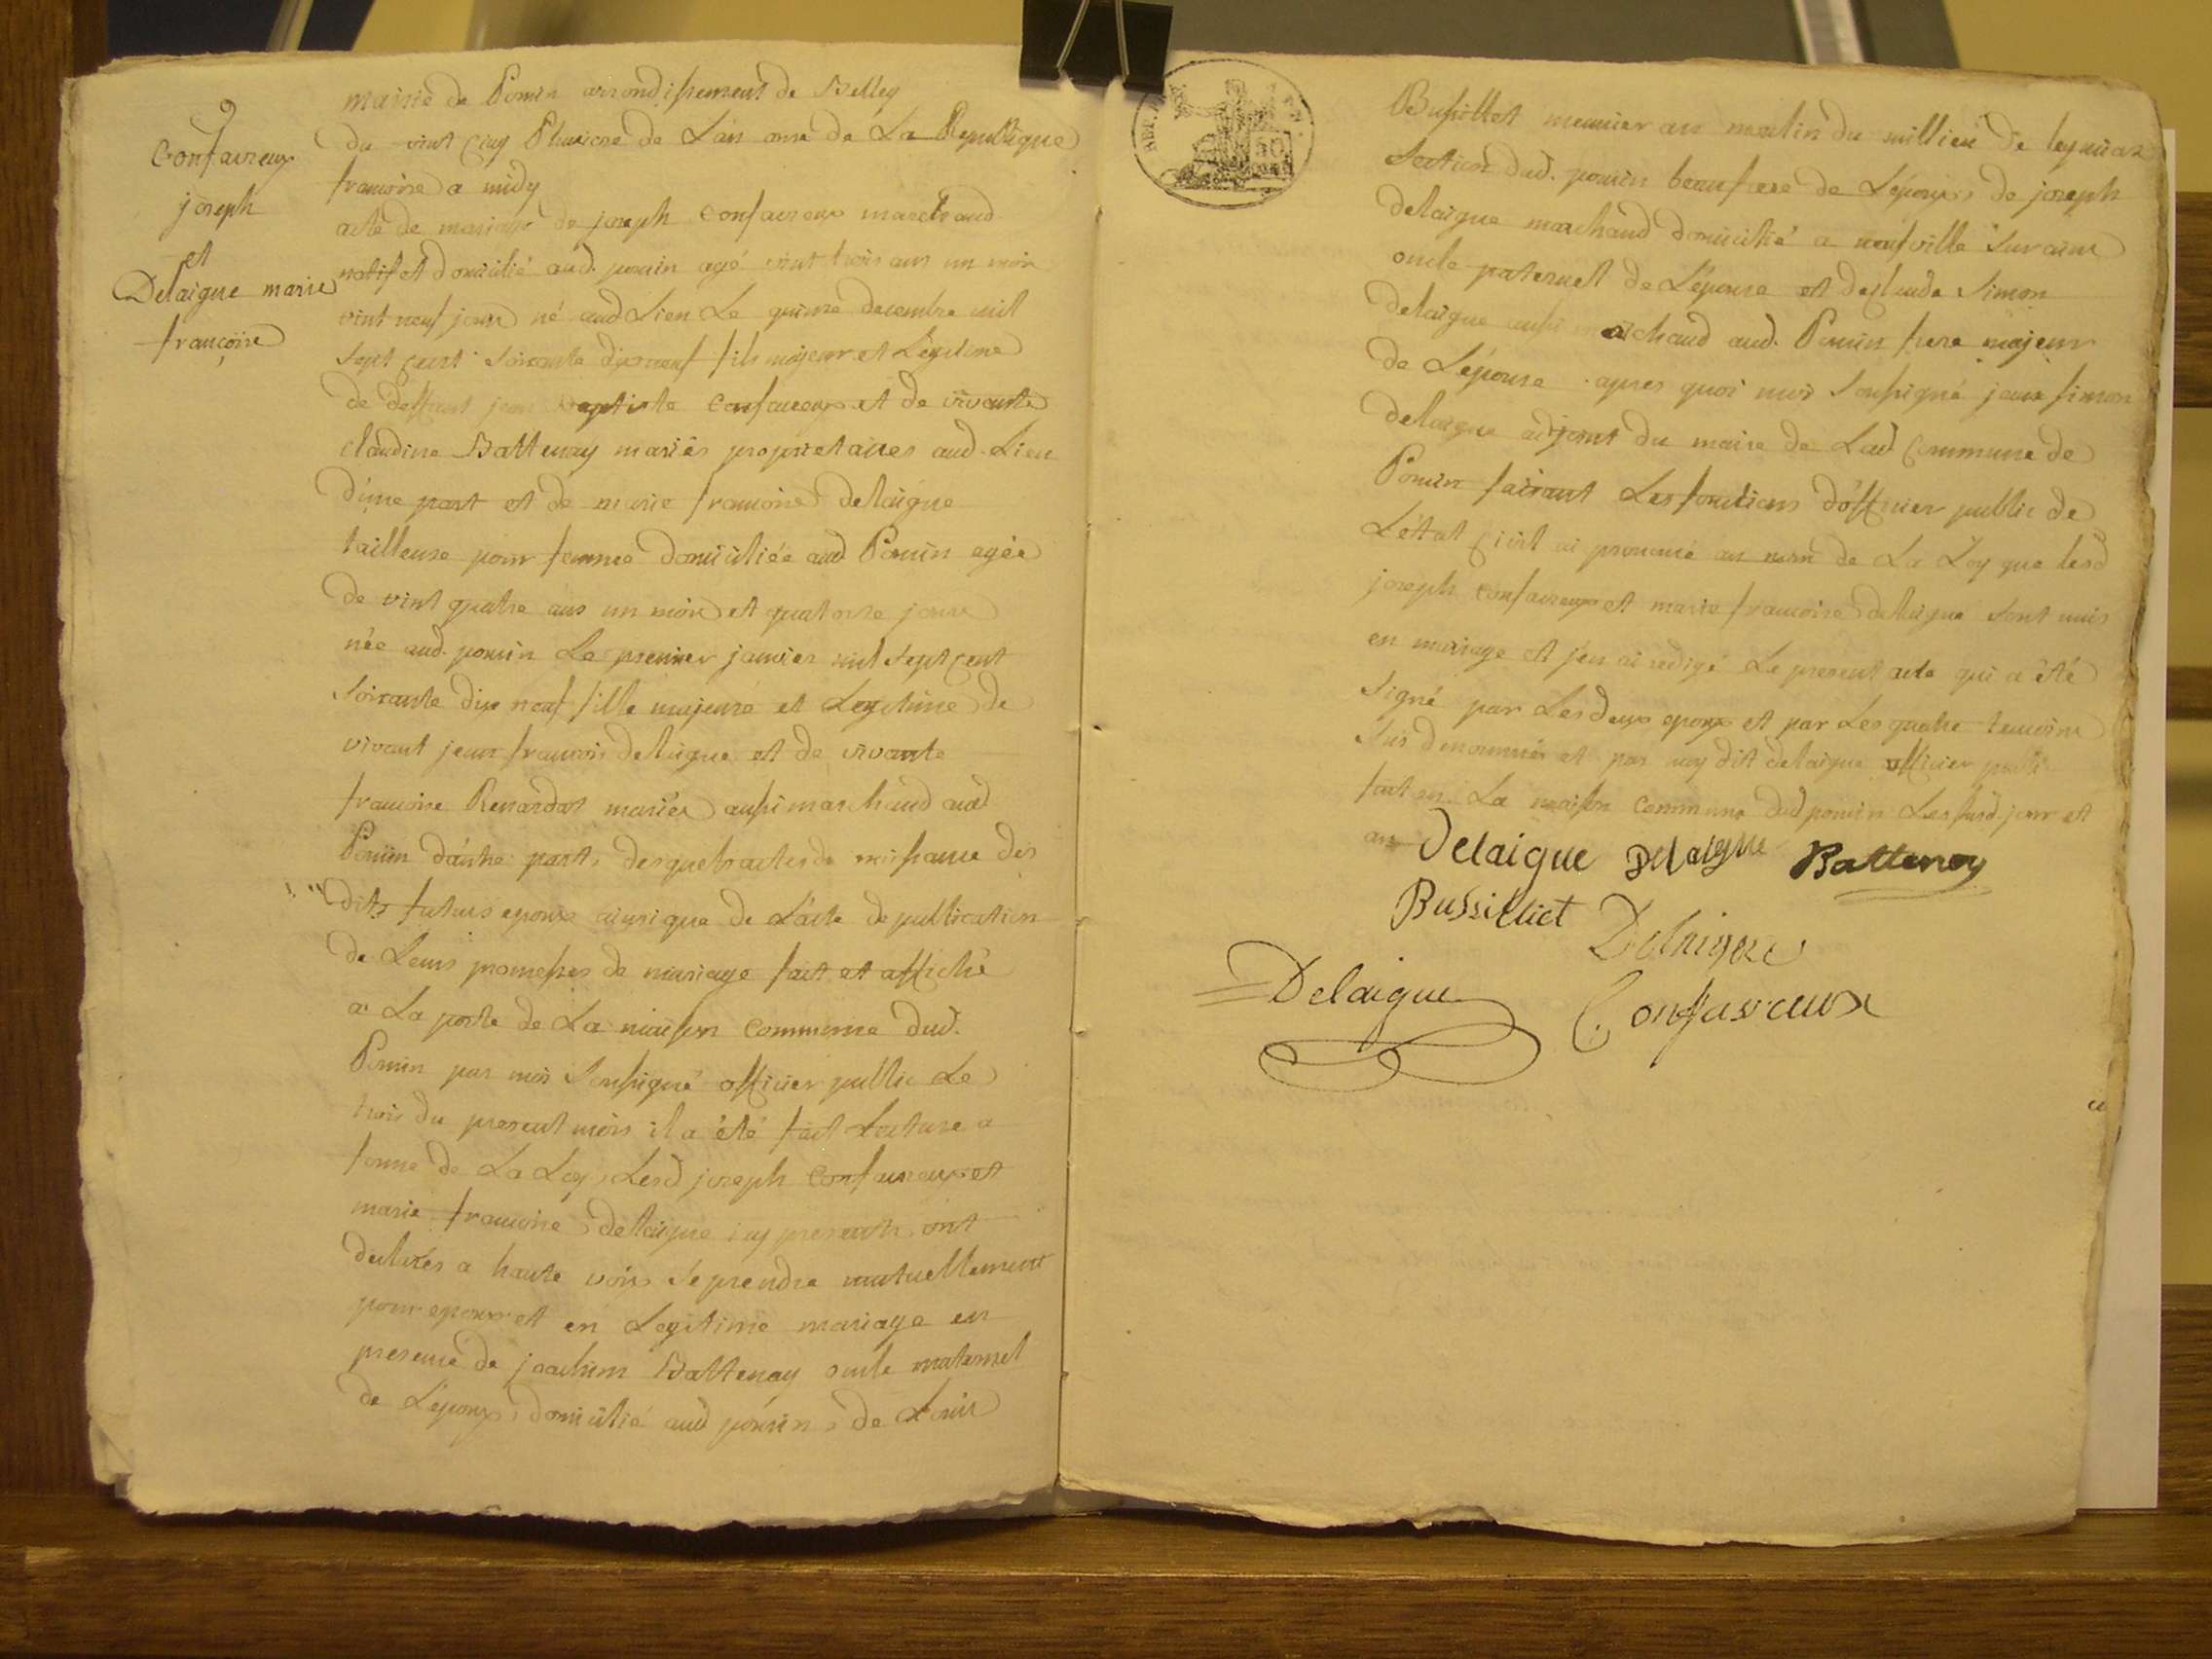 9
Confavreux
joseph
et
Delaigue marie
francoise
mairie de Poncin arrondissement de Belley
du vint cinq Pluviose de L'an onze de La Republique
francoise a midy
acte de mariage de joseph Confavreux marchand
natif et domicilié aud. poncin agé vint trois ans un mois
vint neuf jours né aud Lieu Le quinze decembre mil
Sept cent Soixante dix neuf fils majeur et Légitime
de deffunt jean Baptiste Confavreux et de vivante
claudine Battenay mariés proprietaires aud. Lieu
d'une part et de marie francoise delaigue
tailleuse pour femme domiciliée aud Poncin agée
de vint quatre ans un mois et quatorze jours
née aud. poncin Le premier janvier mil Sept cent
Soixante dix neuf fille majeure et Legitime de
vivant jean francois delaigue et de vivante
francoise Renardat mariés aussi marchand aud
Poncin d'autre part, desquels actes de naissance des
dits futurs epoux ainsi que de L'acte de publication
de Leurs promesses de mariage fait et affiché
a La porte de La maison commune dud.
Poncin par moi Soussigné officier public Le
trois du present mois il a été fait Lecture a
forme de La Loy, Lesd joseph Confavreux et
marie francoise delaigue icy presents ont
declarés a haute voix Se prendre mutuellement
pour epoux et en Legitime mariage en
presence de joachim Battenay oncle maternel
de L'époux, domicilié aud poncin, de Louis
Bussillet meunier au moulin du millieu de leymiat
Section dud. poncin beaufrere de L'époux, de joseph
delaigue marchand domicilié a neufville Sur ain
oncle paternel de L'épouse et de claude Simon
delaigue aussi marchand aud. Poncin frere majeur
de L'épouse. apres quoi moi Soussigné jean simon
delaigue adjoint du maire de Lad Commune de
Poncin faisant Les fonctions d'officier public de
L'état civil ai prononcé au nom de La Loy que lesd
joseph Confavreux et marie francoise delaigue Sont unis
en mariage et j'en ai redigé Le present acte qui a été
Signé par Les deux epoux et par Les quatre temoins
Sus denommés et par moy dit delaigue officier public
fait en La maison Commune dud poncin Les susd. jour et
an Delaigue Delaigue Battenay
Bussilliet Delaigue
Delaigue Confavreux